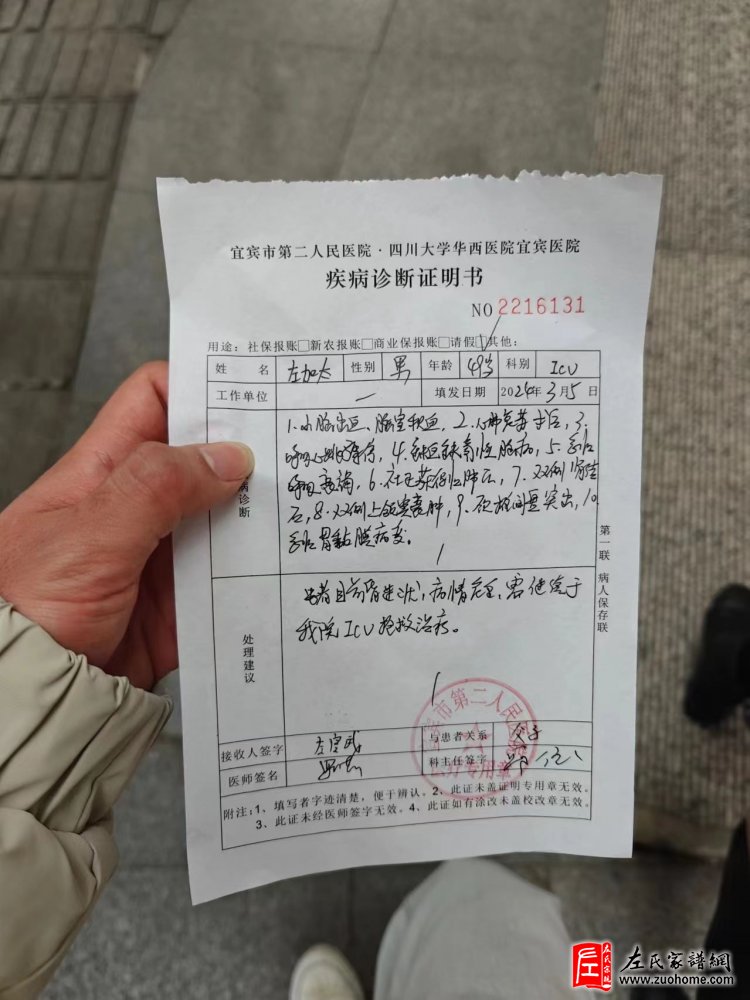 宜宾市第二人民医院·四川大学华西医院宜宾医院
疾病诊断证明书
NO 2216131
用途：社保报账□新农报账□商业保报账□请假□其他：
姓名 左加太 性别 男 年龄 49岁 科别 ICU
工作单位 — 填发日期 2024年3月5日
病诊断
1.小脑出血、脑室积血，2.心肺复苏术后，3.
呼吸心跳骤停，4.缺血缺氧性脑病，5.
呼吸衰竭，6. 7.双侧
8.双侧上颌窦囊肿，9.腰椎间盘突出，10.
处理建议
患者目前昏迷状，病情危重，需继续于
我院ICU抢救治疗。
第一联 病人保存联
接收人签字 与患者关系
医师签名 科主任签字
宾市第二人民医院
专用章
附注：1、填写者字迹清楚，便于辨认。2、此证未盖证明专用章无效。
3、此证未经医师签字无效。4、此证如有涂改未盖校改章无效。
左氏宗親
左氏家譜網
www.zuohome.com